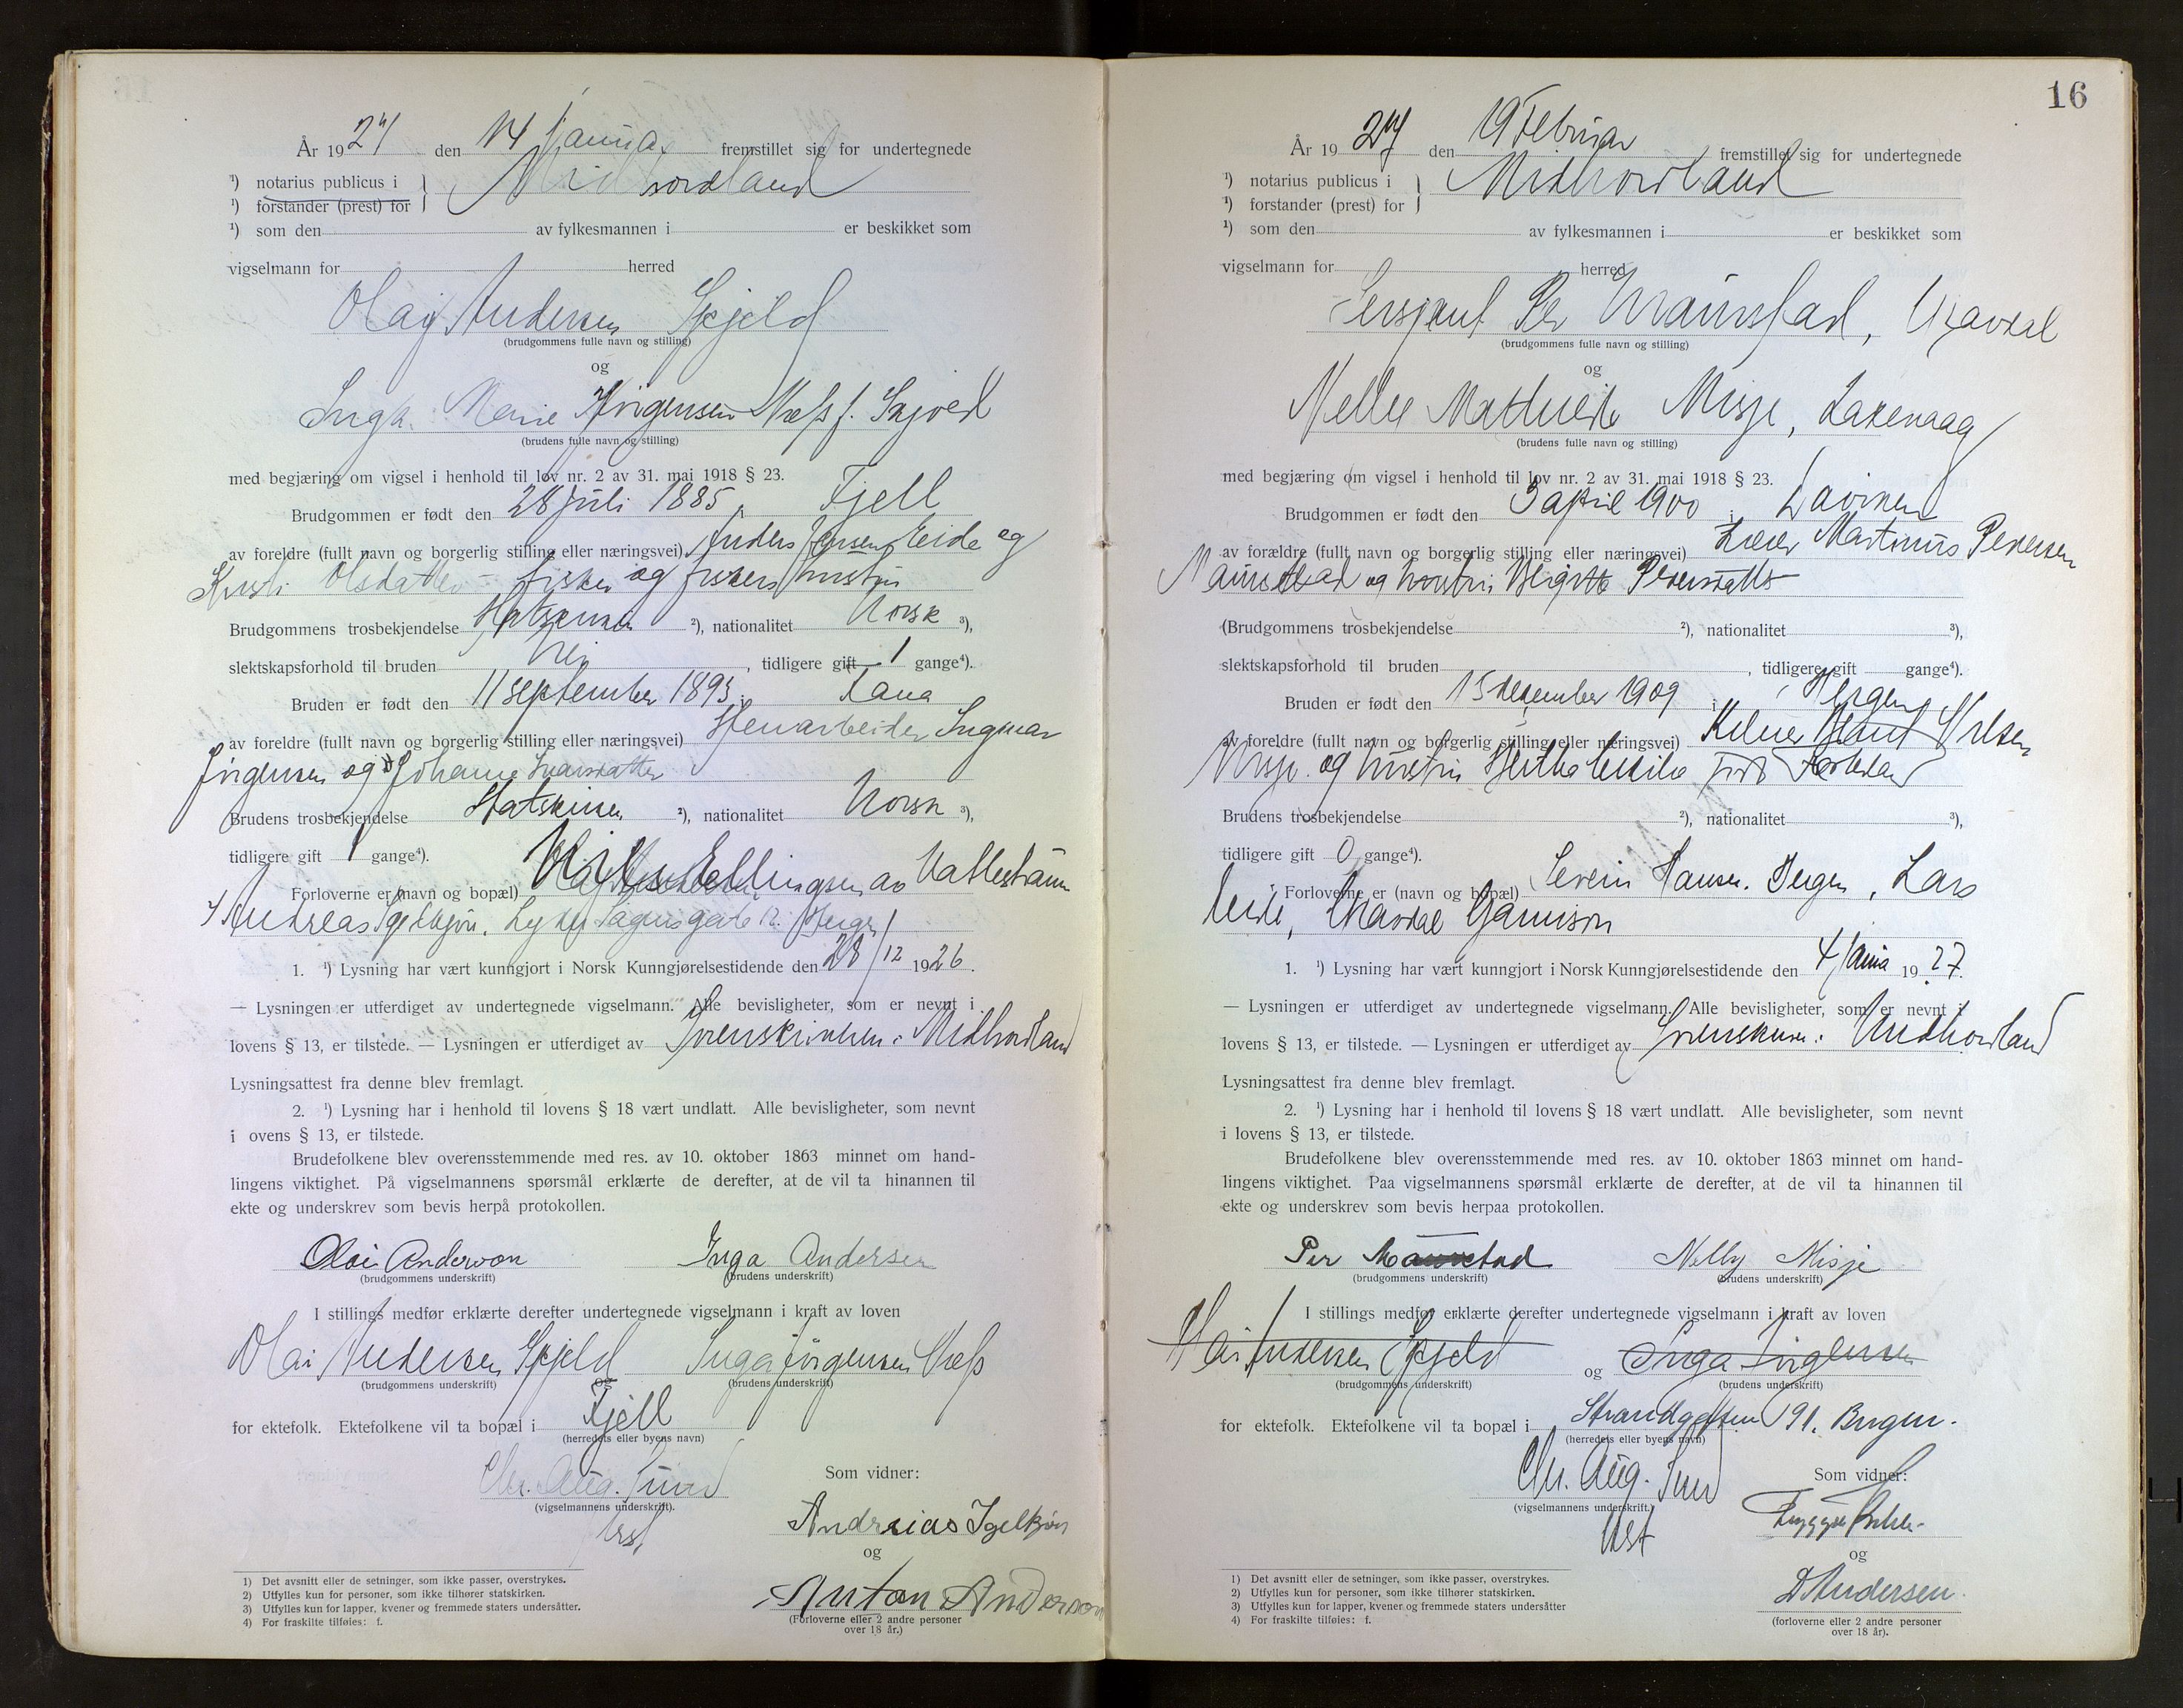 År 1927 den 14 Januar fremstillet sig for undertegnede
¹) notarius publicus i Midhordland
¹) forstander (prest) for
¹) som den av fylkesmannen i er beskikket som
vigselmann for herred
Olai Andersen Gjeld
(brudgommens fulle navn og stilling)
og
Inga Marie Jörgensen f.
(brudens fulle navn og stilling)
med begjæring om vigsel i henhold til lov nr. 2 av 31. mai 1918 § 23.
Brudgommen er født den 28 juli 1885 i Fjell
av foreldre (fullt navn og borgerlig stilling eller næringsvei) Anders Jensen Eide og
Kirsti Olsdatter - fisker og fiskers hustru
Brudgommens trosbekjendelse Statskirken ²), nationalitet Norsk ³),
slektskapsforhold til bruden Nei, tidligere gift 1 gange⁴).
Bruden er født den 11 september 1893 i Rana
av foreldre (fullt navn og borgerlig stilling eller næringsvei) Stenarbeider Ingmar
Jörgensen og Johanna
Brudens trosbekjendelse Statskirken ²), nationalitet Norsk ³),
tidligere gift 1 gange⁴).
Forloverne er (navn og bopæl) Ellingsen av
Andreas Igelkjön, Bergen
1. ¹) Lysning har vært kunngjort i Norsk Kunngjørelsestidende den 28/12 1926.
— Lysningen er utferdiget av undertegnede vigselmann. Alle bevisligheter, som er nevnt i
lovens § 13, er tilstede. — Lysningen er utferdiget av Sorenskriveren i Midhordland
Lysningsattest fra denne blev fremlagt.
2. ¹) Lysning har i henhold til lovens § 18 vært undlatt. Alle bevisligheter, som nevnt
i ovens § 13, er tilstede.
Brudefolkene blev overensstemmende med res. av 10. oktober 1863 minnet om hand-
lingens viktighet. På vigselmannens spørsmål erklærte de derefter, at de vil ta hinannen til
ekte og underskrev som bevis herpå protokollen.
Olai Anderson Inga Andersen
(brudgommens underskrift) (brudens underskrift)
I stillings medfør erklærte derefter undertegnede vigselmann i kraft av loven
Olai Andersen Gjeld Inga Jörgensen
(brudgommens underskrift) og (brudens underskrift)
for ektefolk. Ektefolkene vil ta bopæl i Fjell
(herredets eller byens navn)
Chr. Aug. Lund Som vidner:
(vigselmannens underskrift).
Andreias Igelkjön
og
Anton Anderson
(Forloverne eller 2 andre personer
over 18 år.)
1) Det avsnitt eller de setninger, som ikke passer, overstrykes.
2) Utfylles kun for personer, som ikke tilhører statskirken.
3) Utfylles kun for lapper, kvener og fremmede staters undersåtter.
4) For fraskilte tilføies: f.
16
År 1927 den 19 Februar fremstillet sig for undertegnede
¹) notarius publicus i Midhordland
¹) forstander (prest) for
¹) som den av fylkesmannen i er beskikket som
vigselmann for herred
Sersjant Per Maurstad, Ulavdal
(brudgommens fulle navn og stilling)
og
Nelly Mathilde Misje, Laxevaag
(brudens fulle navn og stilling)
med begjæring om vigsel i henhold til lov nr. 2 av 31. mai 1918 § 23.
Brudgommen er født den 3 april 1900 i Daviken
av forældre (fullt navn og borgerlig stilling eller næringsvei) Lærer Martinus Pedersen
Maurstad og hustru Birgitte Pedersdatter
(Brudgommens trosbekjendelse ²), nationalitet ³),
slektskapsforhold til bruden , tidligere gift gange⁴).
Bruden er født den 15 desember 1909 i Bergen
av foreldre (fullt navn og borgerlig stilling eller næringsvei) Nilsen
Misje og hustru Bertha Cecilia født
Brudens trosbekjendelse ²), nationalitet ³),
tidligere gift 0 gange⁴).
Forloverne er (navn og bopæl) Severin Hansen, Bergen, Lars
Eide, Ulavdal Garnison
1. ¹) Lysning har vært kunngjort i Norsk Kunngjørelsestidende den 4 Janua 1927.
— Lysningen er utferdiget av undertegnede vigselmann. Alle bevisligheter, som er nevnt i
lovens § 13, er tilstede. — Lysningen er utferdiget av Sorenskriver i Midhordland
Lysningsattest fra denne blev fremlagt.
2. ¹) Lysning har i henhold til lovens § 18 vært undlatt. Alle bevisligheter, som nevnt
i lovens § 13, er tilstede.
Brudefolkene blev overensstemmende med res. av 10. oktober 1863 minnet om hand-
lingens viktighet. Paa vigselmannens spørsmål erklærte de derefter, at de vil ta hinannen til
ekte og underskrev som bevis herpaa protokollen.
Per Maurstad Nelly Misje
(brudgommens underskrift) (brudens underskrift)
I stillings medfør erklærte derefter undertegnede vigselmann i kraft av loven
Olai Andersen Gjeld og Inga Jörgensen
(brudgommens underskrift) (brudens underskrift)
for ektefolk. Ektefolkene vil ta bopæl i Strandgaten 191. Bergen.
(herredets eller byens navn)
Chr. Aug. Lund Som vidner:
(vigselmannens underskrift.)
og
D Andersen.
(forloverne eller 2 andre personer
over 18 år).
1) Det avsnitt eller de setninger, som ikke passer, overstrykes.
2) Utfylles kun for personer, som ikke tilhører statskirken.
3) Utfylles kun for lapper, kvener og fremmede staters undersåtter
4) For fraskilte tilføies: f.